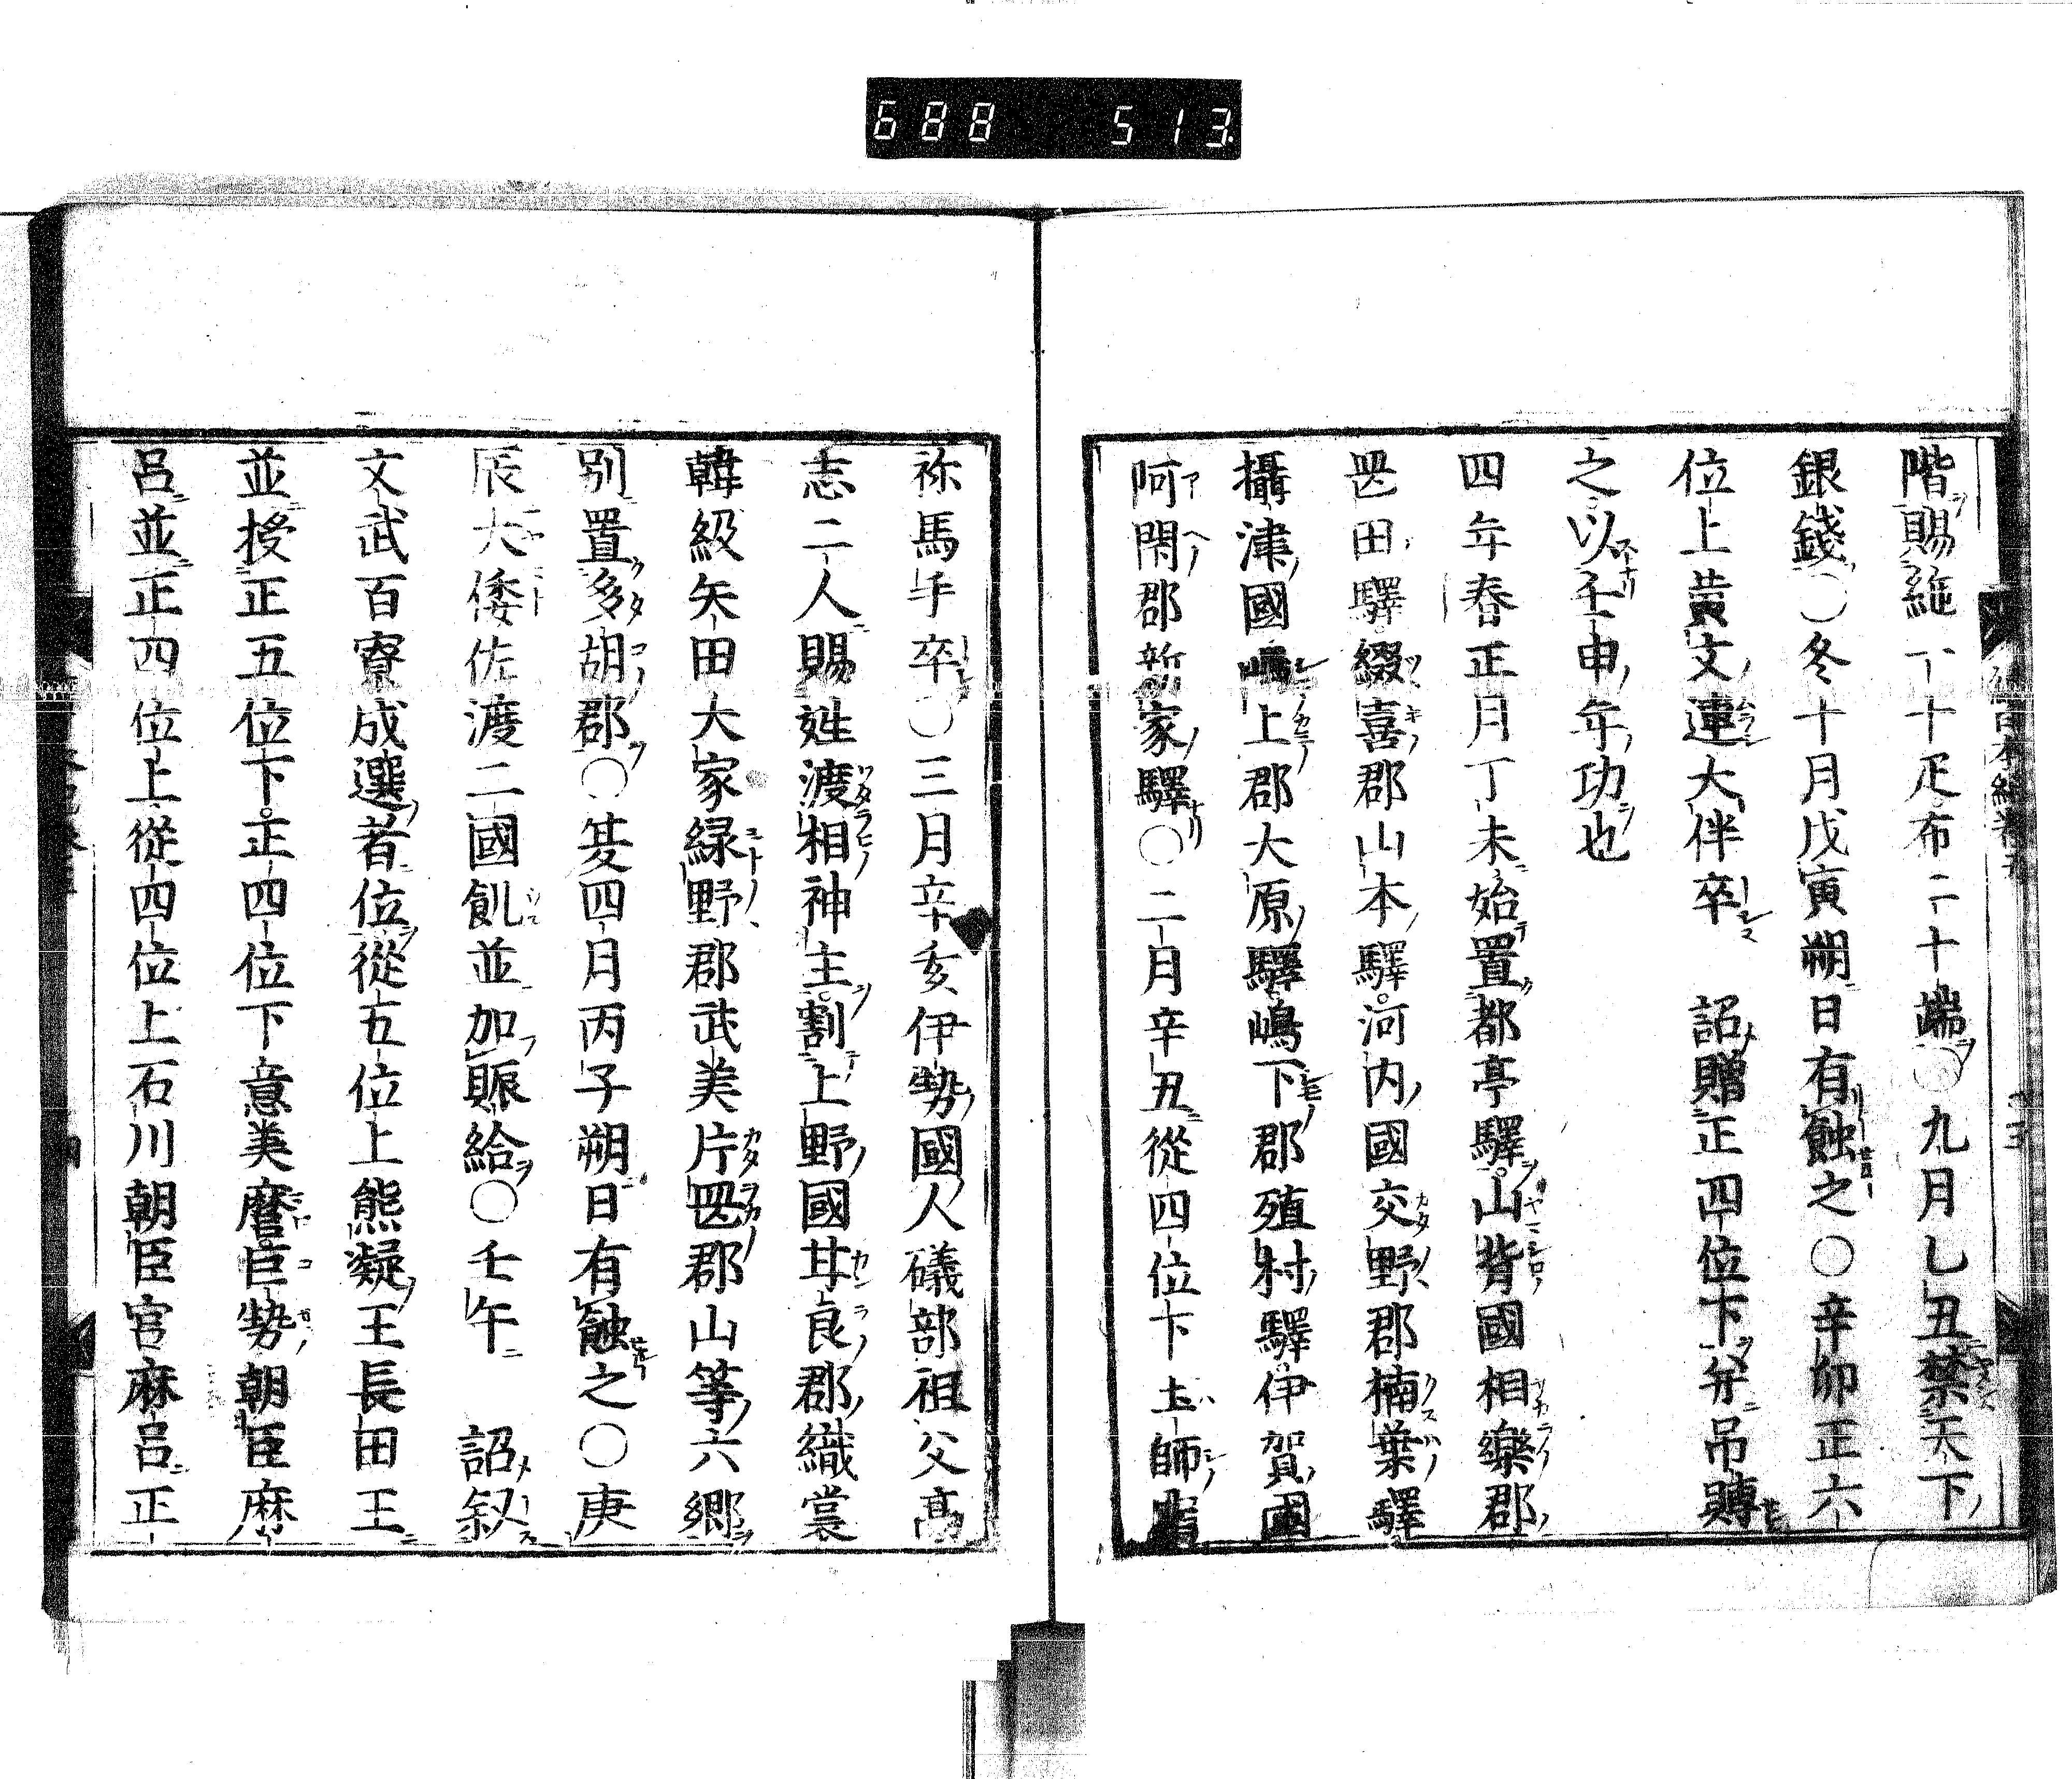 688 513
階賜絁一十疋布二十端〇九月乙丑禁天下
銀錢〇冬十月戊寅朔日有蝕之〇辛卯正六
位上黄文連大伴卒 詔贈正四位下并吊賻
之以壬申年功也
四年春正月丁未始置都亭驛山背國相樂郡
罡田驛綴喜郡山本驛河内國交野郡楠葉驛
攝津國嶋上郡大原驛嶋下郡殖村驛伊賀國
阿閇郡新家驛〇二月辛丑從四位下土師宿
祢馬手卒〇三月辛亥伊勢國人礒部祖父髙
志二人賜姓渡相神主割上野國甘良郡織裳
韓級矢田大家緑野郡武美片罡郡山等六郷
別置多胡郡〇夏四月丙子朔日有蝕之〇庚
辰大倭佐渡二國飢並加賑給〇壬午 詔叙
文武百寮成選者位從五位上熊凝王長田王
並授正五位下正四位下意美麿巨勢朝臣麻
呂並正四位上從四位上石川朝臣宮麻呂正